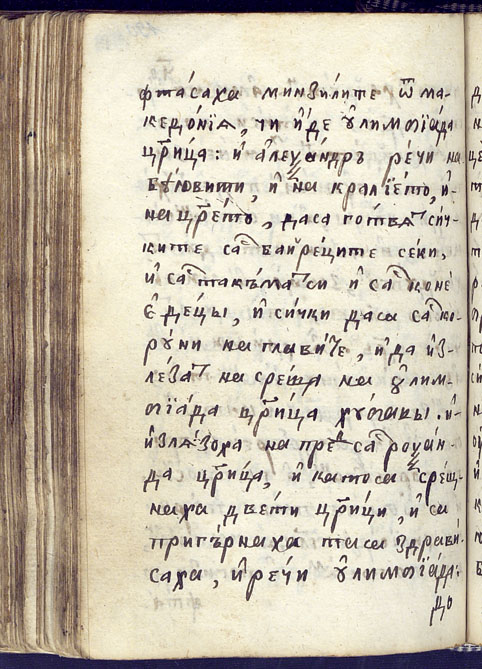 фта́саха минзи́лите ѿ ма-
кедо́нїѧ, чи и҆́де ѹ҆лимпїа́да
цр҃и́ца: и҆ а҆леѯа́ндръ ре́чи на
и҆ на крали́ето, и҆-
на цр҃е́то, даса готвѧт си́ч-
ките сас байреците се́ки,
и҆ сас такъма си и҆ сас коне
деци, и҆ си́чки даса сас ко-
ру́ни на глави́те, и҆ да и҆з-
ле́зат на сре́ща на ѹ҆лим-
пїа́да цр҃и́ца хубавы. и҆-
и҆злѧ́зоха на пред сас роѯа́н-
да цр҃и́ца, и҆ катоса сре́щ-
наха двѣти цр҃и́ци, и҆ са
пригъ́рнаха таса здрави́-
саха, и҆ ре́чи ѹ҆лимпїа́да:
до